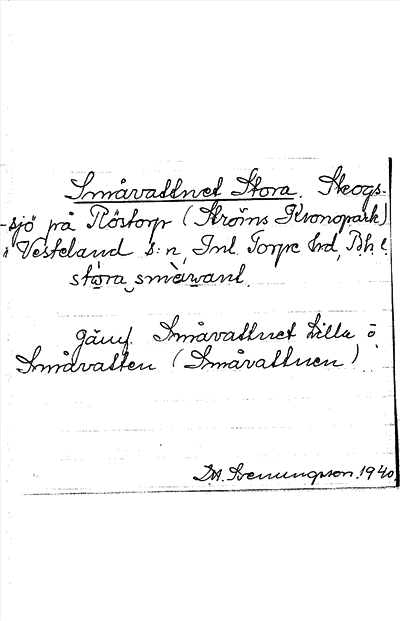 Småvattnet Stora. Skogs-
-sjö på Röstorp (Ströms Kronopark)
i Vesteland s:n, Inl. Torpe hd, Bh. l.
stora småvant.
Jämf. Småvattnet Lilla o
Småvatten (Småvattnen)
D.A. Svenungsson. 1940